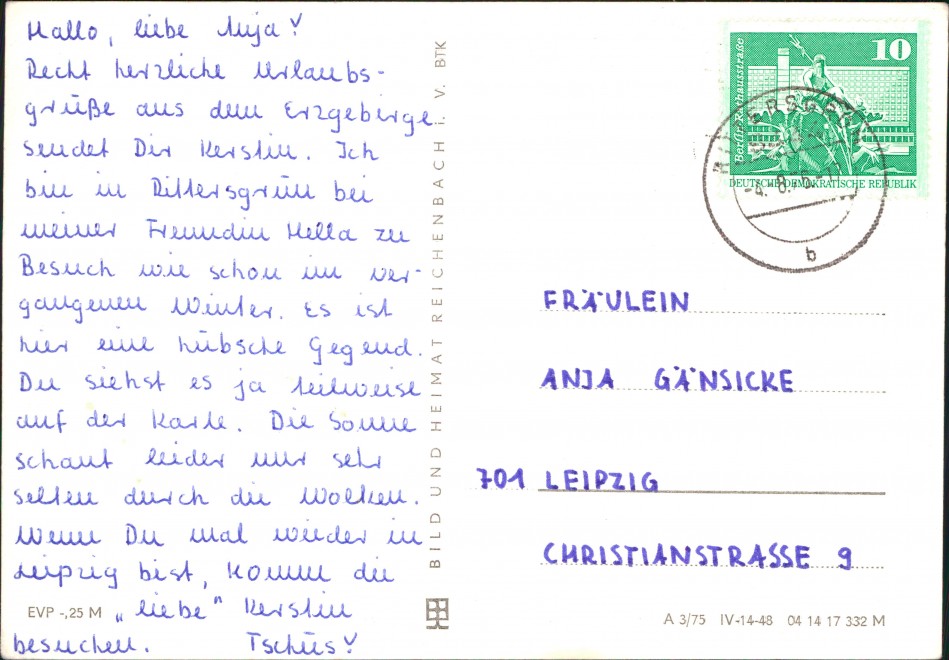 Hallo, liebe Anja!
Recht herzliche Urlaubs-
grüße aus dem Erzgebirge
sendet Dir Kerstin. Ich
bin in Rittersgrün bei
meiner Freundin Hella zu
Besuch wie schon im ver-
gangenen Winter. Es ist
hier eine hübsche Gegend.
Du siehst es ja teilweise
auf der Karte. Die Sonne
schaut leider nur sehr
selten durch die Wolken.
Wenn Du mal wieder in
Leipzig bist, komm die
„liebe" Kerstin
besuchen. Tschüs!
EVP -,25 M
BILD UND HEIMAT REICHENBACH I. V. BTK
10
Berlin, Rathausstraße
DEUTSCHE DEMOKRATISCHE REPUBLIK
b
FRÄULEIN
ANJA GÄNSICKE
701 LEIPZIG
CHRISTIANSTRASSE 9
A 3/75 IV-14-48 04 14 17 332 M